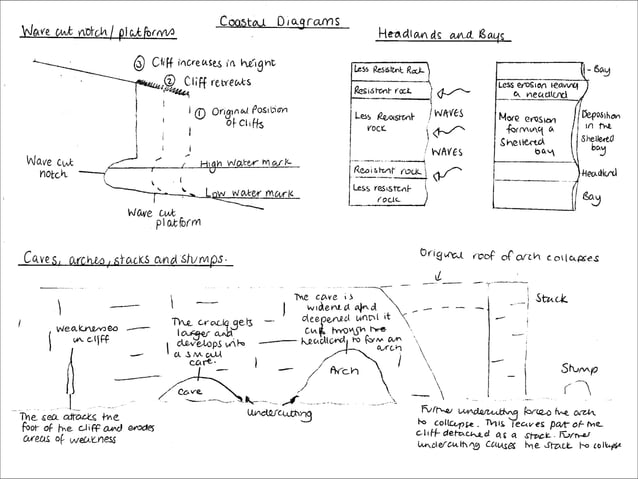 Coastal Diagrams
Wave cut notch/platforms
③ Cliff increases in height
② Cliff retreats
① Original Position
of Cliffs
Wave cut
notch
High Water mark
Low Water mark
Wave cut
platform
Headlands and Bays
Less Resistant Rock
Resistant rock
Less Resistant
rock
Resistant rock
Less resistant
rock
WAVES
WAVES
Less erosion leaving
a headland
More erosion
forming a
Sheltered
bay
- Bay
Deposition
in the
Sheltered
bay
Headland
Bay
Caves, arches, stacks and stumps.
weaknesses
in cliff
The sea attacks the
foot of the cliff and erodes
areas of weakness
The crack gets
larger and
develops into
a small
cave.
Cave
undercutting
The cave is
widened and
deepened until it
cuts through the
headland to form an
arch
Arch
Original roof of arch collapses
Stack
Stump
Further undercutting forces the arch
to collapse. This leaves part of the
cliff detached as a stack. Further
undercutting causes the stack to collapse